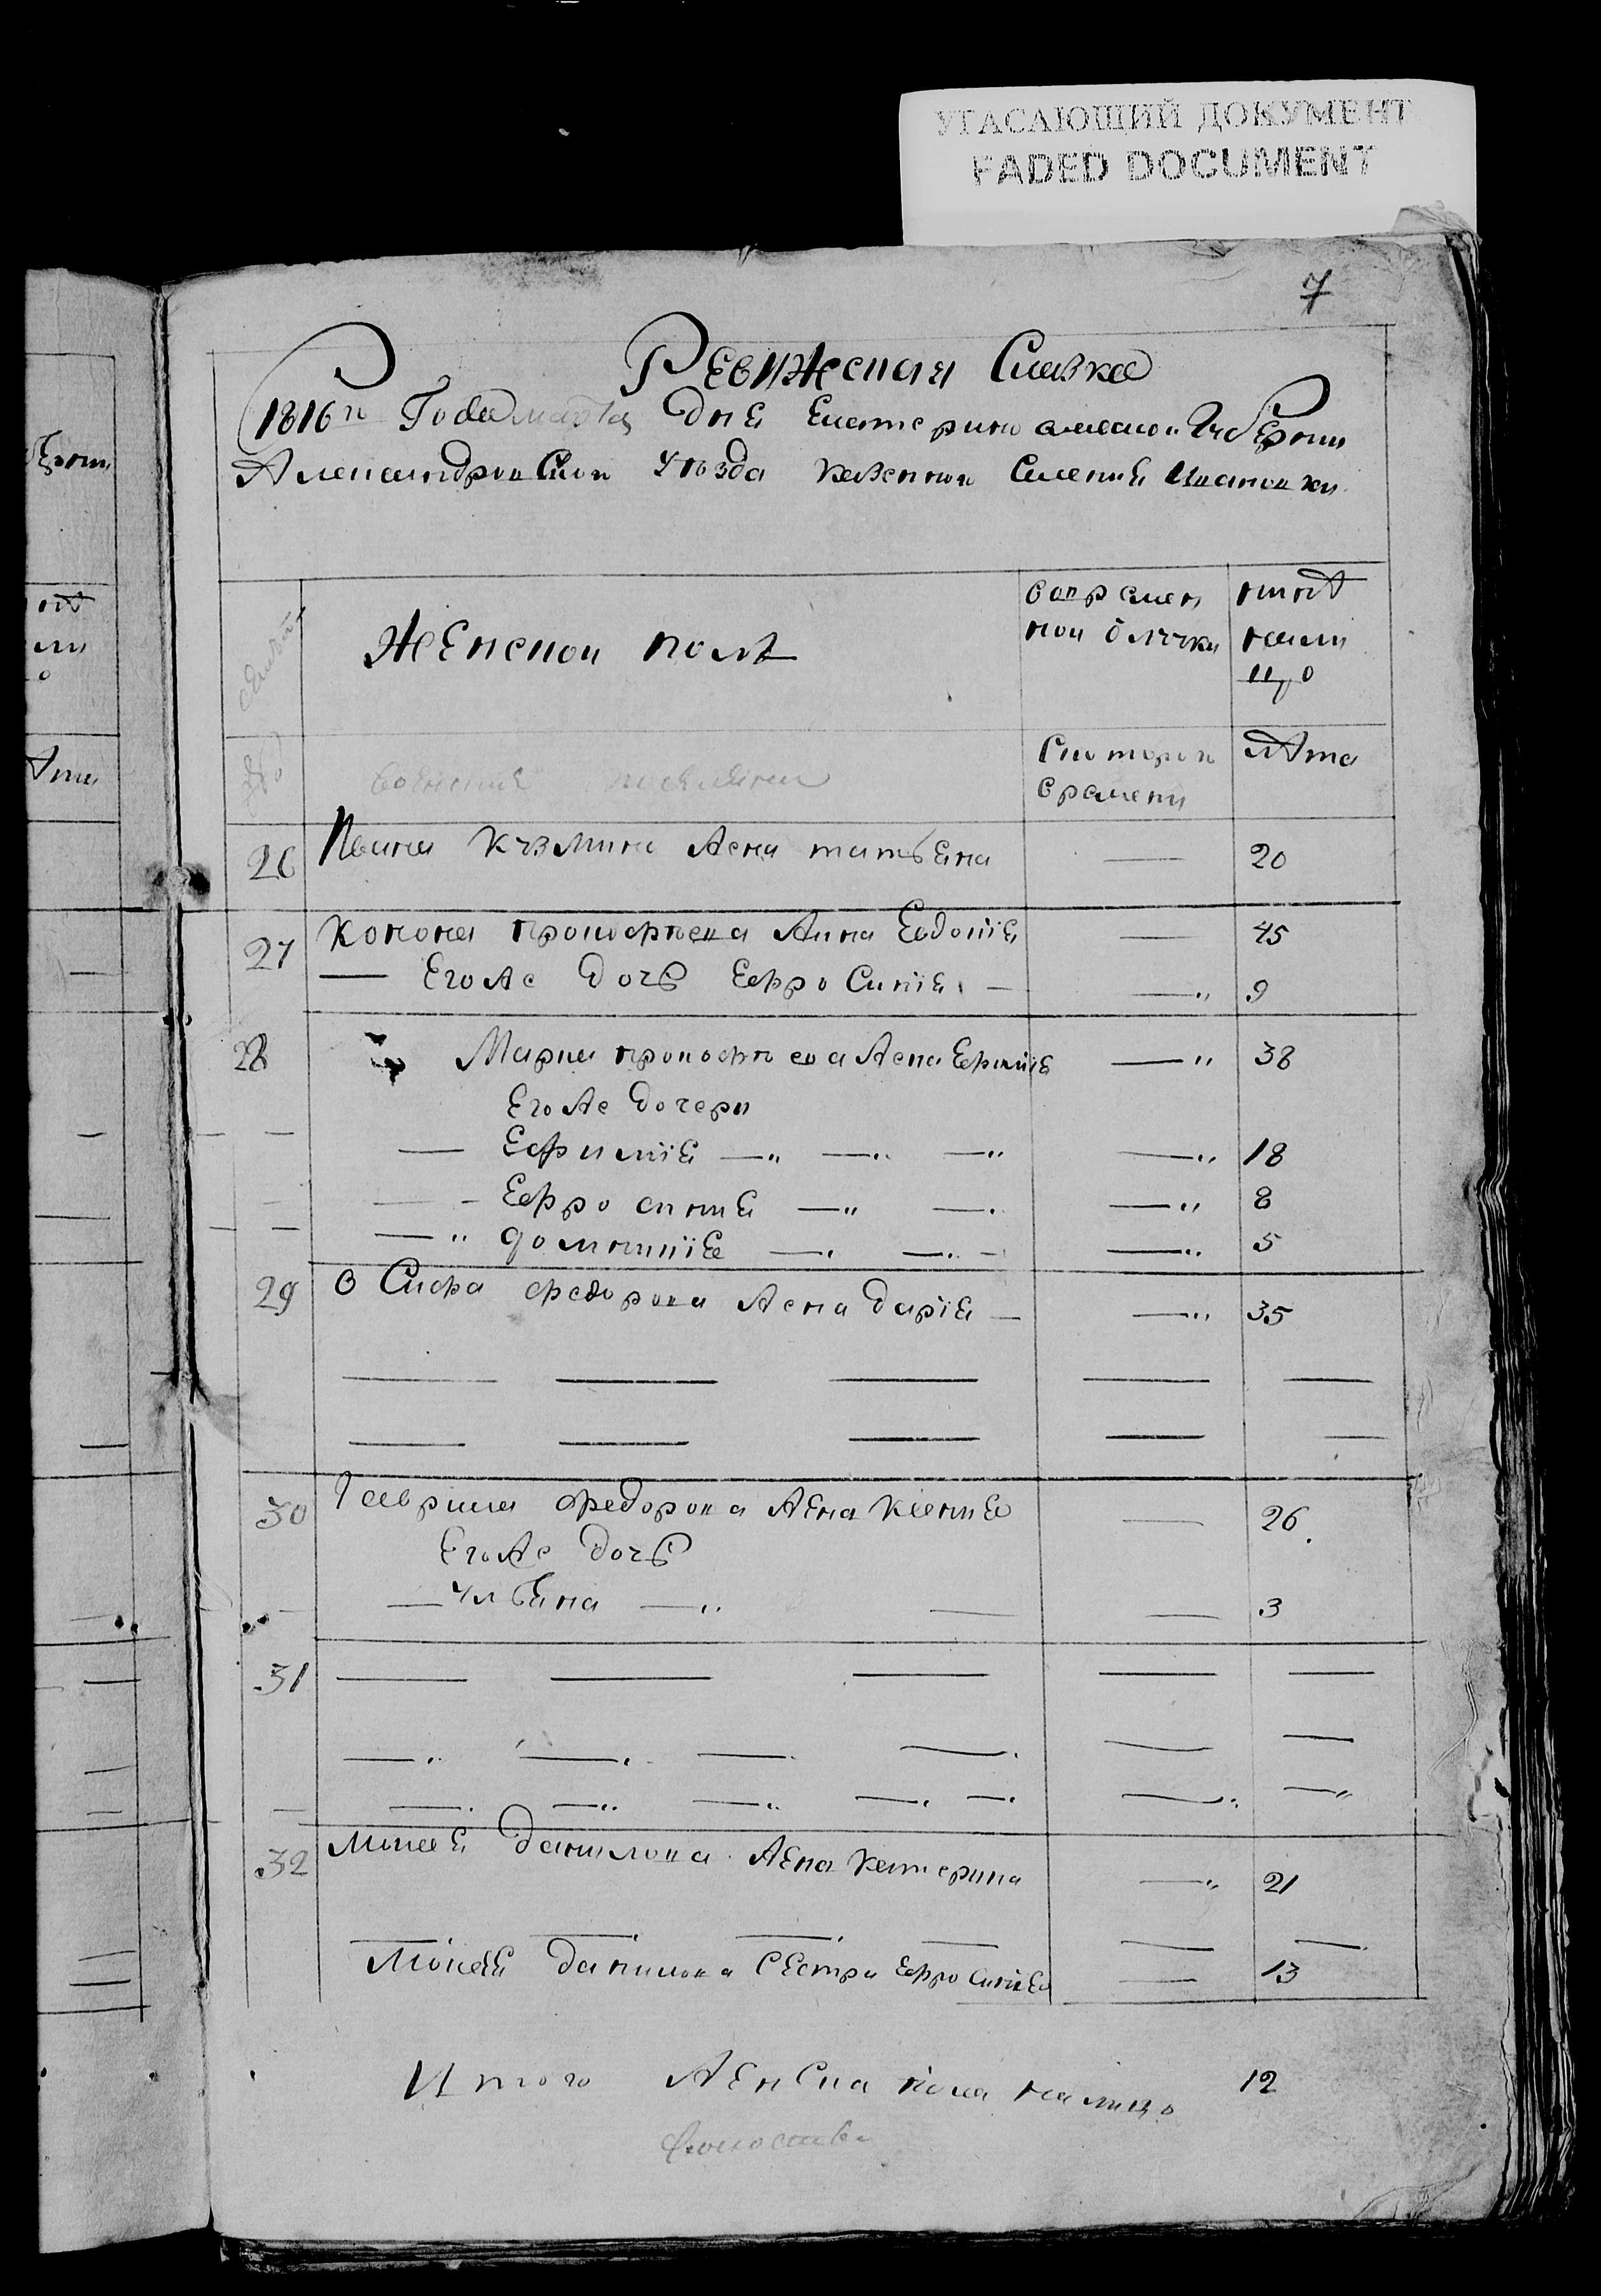 УГАСАЮЩИЙ ДОКУМЕНТ
FADED DOCUMENT
7
Ревижская Сказка
1816го Года марта дня Екатеринославской Губернии
Александровской уезда казенной Селения Ивановки
Женской полъ
во временной отлучки
ныне налицо
№
военные поселяни
С которого времени
лета
26 Ивана Кузмина Жена татьяна — 20
27 Конона прокофьева Жина Евдокия — 45
— Егоже дочь Ефросиния — —" 9
28 Марка прокофьева Жена Ефимия —" 38
Егоже дочери
— Ефимия —" —" —" —" 18
— - Ефросиния —" —. —" 8
—" домникия —. —. - —" 5
29 Осипа федорова Жена дария — —" 35
30 Гаврила федорова Жена Ксения — 26.
Егоже дочь
— ульяна —" — — 3
31 — — — — —
32 Мокея данилова Жена катерина —" 21
Мокея данилова Сестра Ефросиния — 13
Итого Женска пола налицо 12